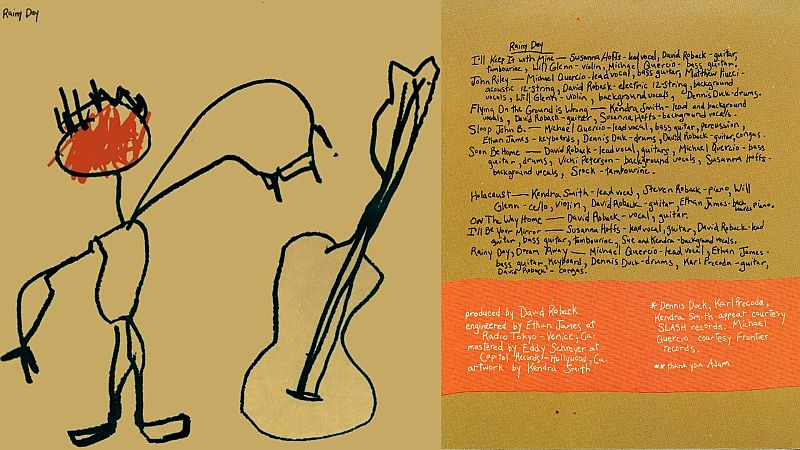 Rainy Day
Rainy Day
I'll Keep It with Mine — Susanna Hoffs - lead vocal, David Roback - guitar,
tambourine, Will Glenn - violin, Michael Quercio - bass guitar.
John Riley — Michael Quercio - lead vocal, bass guitar, Matthew Piucci -
acoustic 12-string, David Roback - electric 12-string, background
vocals, Will Glenn - violin, background vocals, Dennis Duck - drums.
Flying On the Ground is Wrong — Kendra Smith - lead and background
vocals, David Roback - guitar, Susanna Hoffs - background vocals.
Sloop John B. — Michael Quercio - lead vocal, bass guitar, percussion,
Ethan James - keyboards, Dennis Duck - drums, David Roback - guitar, congas.
Soon Be Home — David Roback - lead vocal, guitars, Michael Quercio - bass
guitar, drums, Vicki Peterson - background vocals, Susanna Hoffs -
background vocals, Stock - tambourine.
Holocaust — Kendra Smith - lead vocal, Steven Roback - piano, Will
Glenn - cello, violin, David Roback - guitar, Ethan James - backwards piano.
On The Way Home — David Roback - vocal, guitar.
I'll Be Your Mirror — Susanna Hoffs - lead vocal, guitar, David Roback - lead
guitar, bass guitar, tambourine, Sue and Kendra - background vocals.
Rainy Day, Dream Away — Michael Quercio - lead vocal, Ethan James -
bass guitar, keyboard, Dennis Duck - drums, Karl Precoda - guitar,
David Roback - congas.
produced by David Roback
engineered by Ethan James at
Radio Tokyo - Venice, Ca.
mastered by Eddy Schreyer at
Capitol Records - Hollywood, Ca.
artwork by Kendra Smith
* Dennis Duck, Karl Precoda,
Kendra Smith appear courtesy
SLASH records. Michael
Quercio courtesy Frontier
records.
** thank you Adam